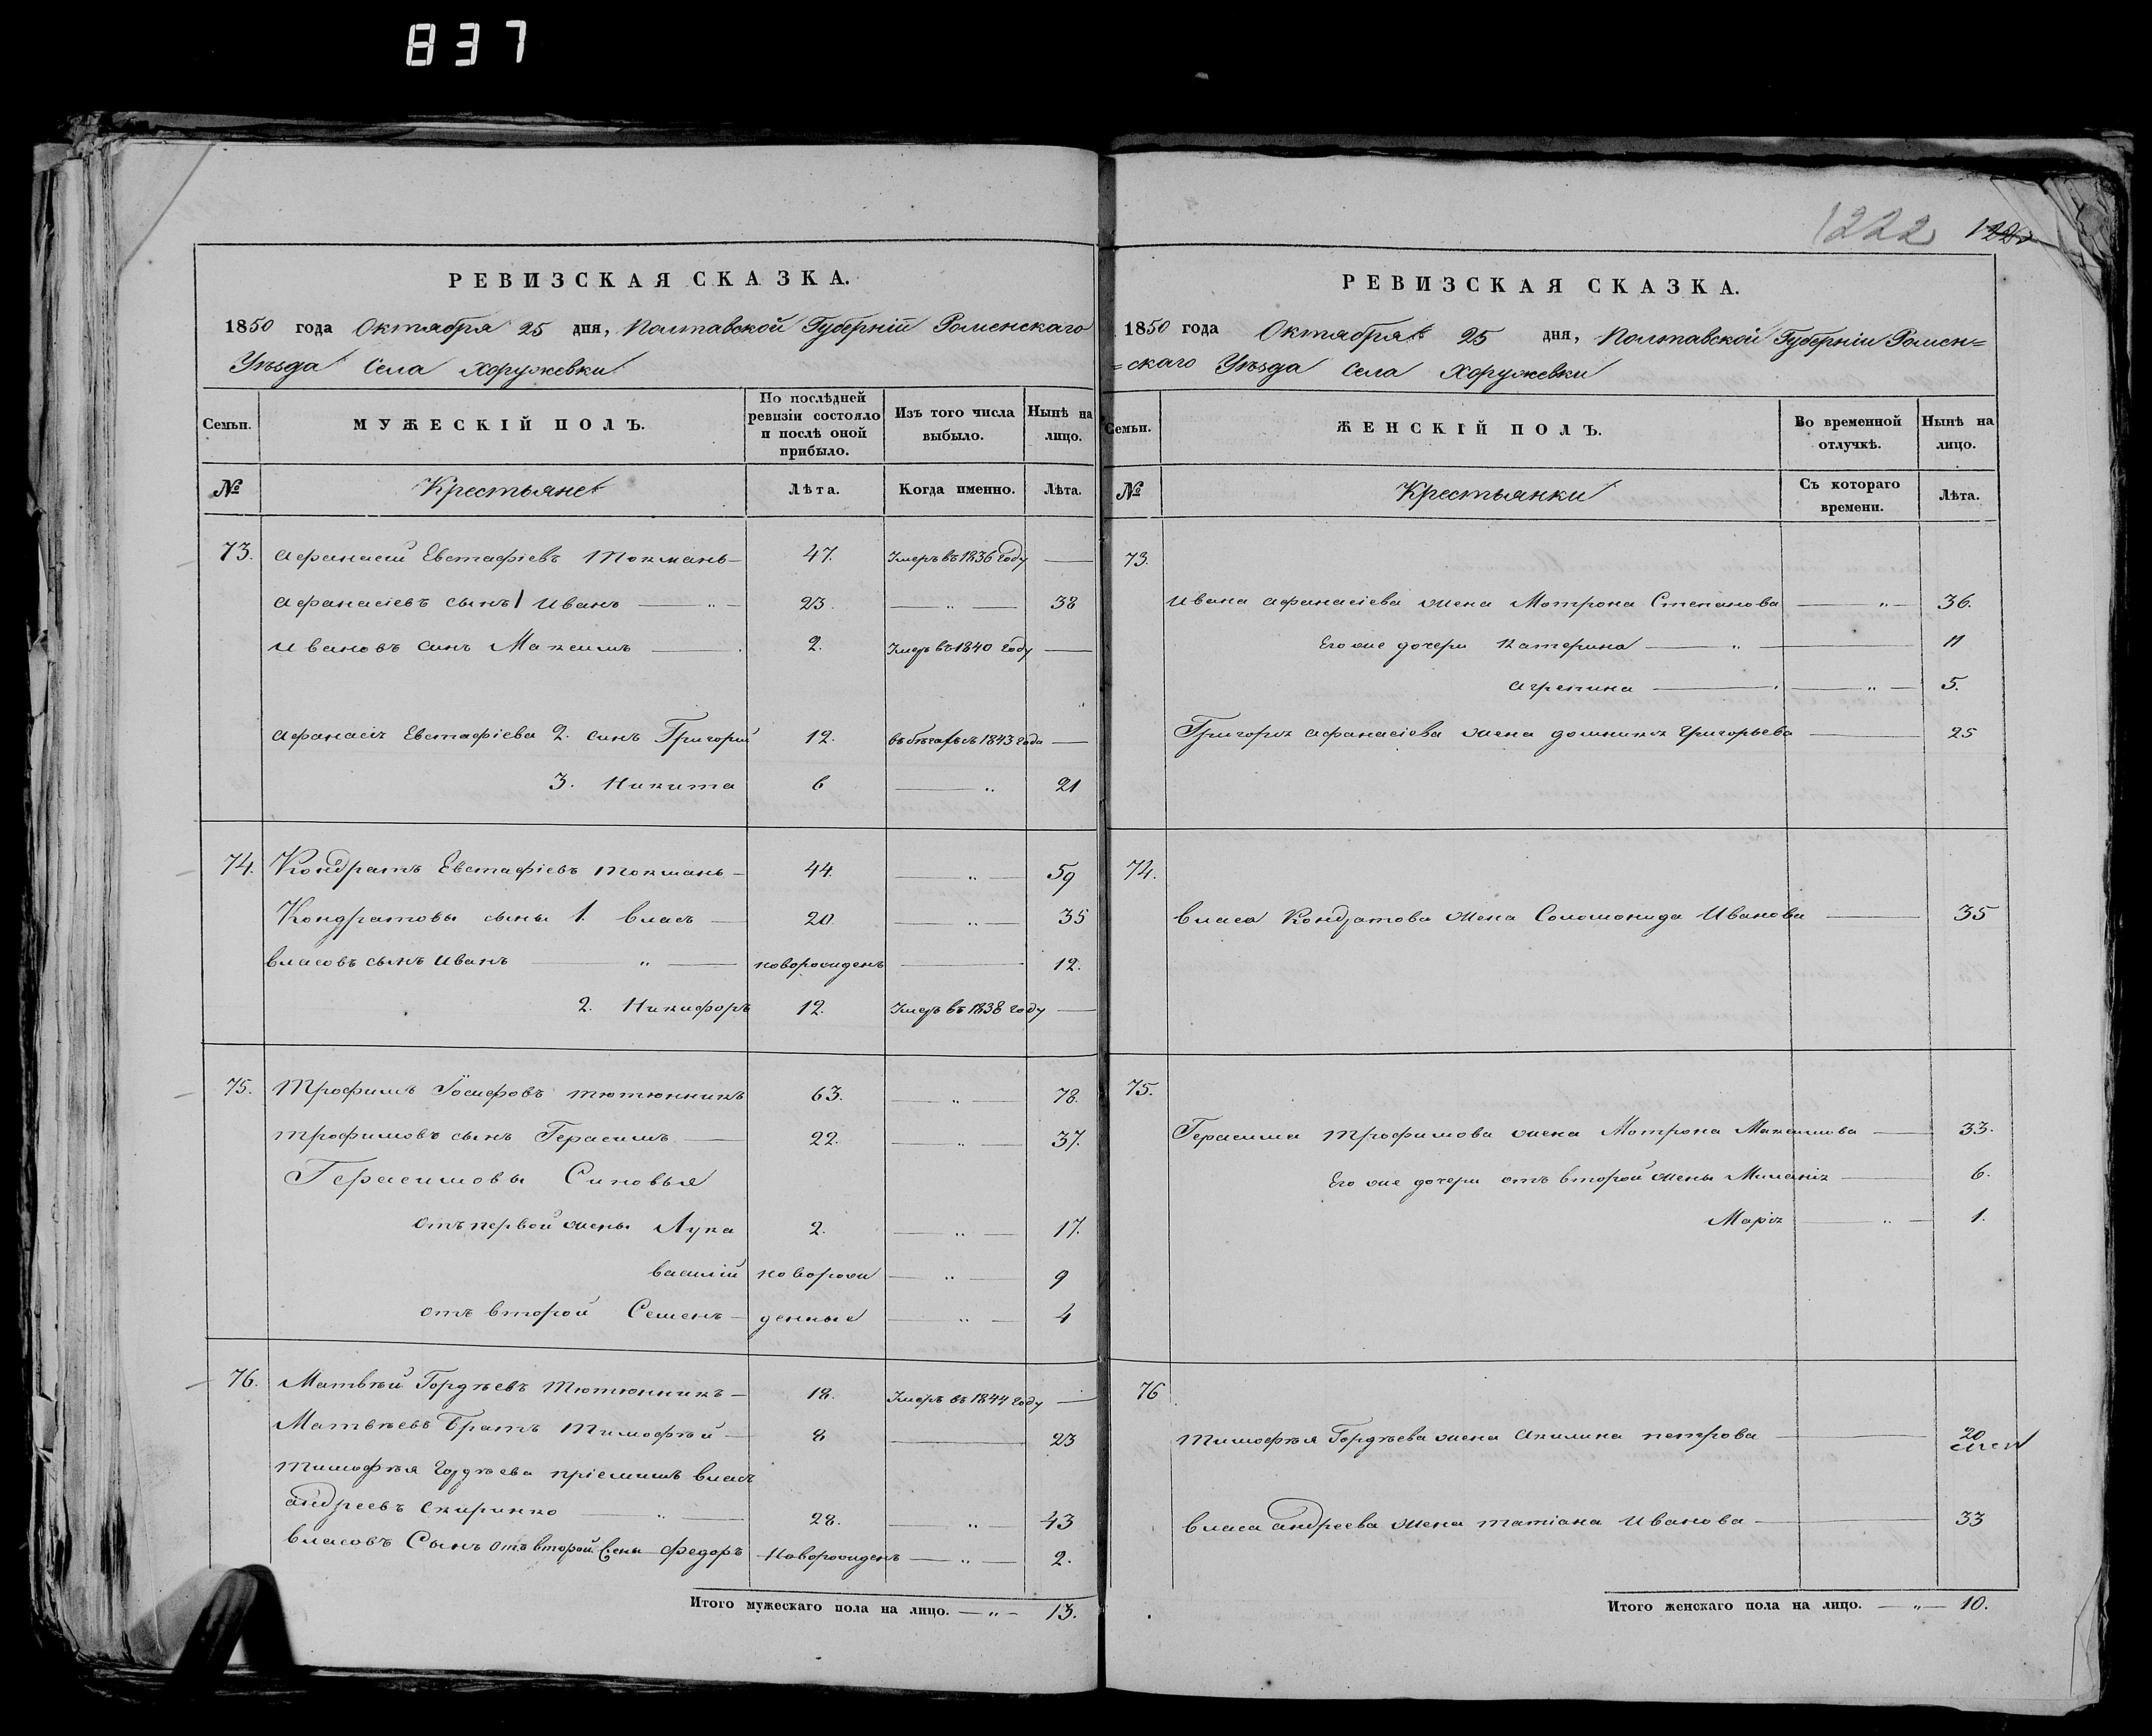 837
РЕВИЗСКАЯ СКАЗКА.
1850 года Октября 25 дня, Полтавской Губерніи Роменскаго
Уѣзда Села Хоружевки
Семьи.
МУЖЕСКІЙ ПОЛЪ.
По послѣдней ревизіи состояло и послѣ оной прибыло.
Изъ того числа выбыло.
Нынѣ на лицо.
№ Крестьяне Лѣта. Когда именно. Лѣта.
73. Афанасий Евстафіевъ Токмань — 47. Умеръ въ 1836 году —
Афанасіевъ сынъ 1 Иванъ — „ — 23. — „ — 38
Ивановъ синъ Максимъ — 2. Умеръ въ 1840 году —
Афанасія Евстафіева 2. синъ Григорий 12. въ бѣгахъ съ 1843 года —
3. Никита 6 — „ 21
74. Кондратъ Евстафіевъ Токмань — 44. — „ — 59
Кондратовы сыны 1. Власъ — 20. — „ — 35
Власовъ сынъ Иванъ — „ — новорожденъ — 12.
2. Никифоръ 12. Умеръ въ 1838 году —
75. Трофимъ Іосифовъ Тютюнникъ 63. — „ — 78.
Трофимовъ сынъ Герасимъ — 22. — „ — 37.
Герасимовы Синовья
отъ первой жены Лука 2. — „ — 17.
Василій новорож — „ — 9
отъ второй Семенъ — денные — „ — 4
76. Матвѣй Гордѣевъ Тютюнникъ — 18. Умеръ въ 1844 году —
Матвѣевъ Братъ Тимофѣй — 8 — 23
Тимофѣя Гордѣева пріемишъ Власъ
Андреевъ Скиринко — „ — 28. — „ — 43
Власовъ Сынъ отъ второй жены Федоръ Новорожденъ — „ — 2.
Итого мужескаго пола на лицо. — „ — 13.
1222
РЕВИЗСКАЯ СКАЗКА.
1850 года Октября 25 дня, Полтавской Губерніи Ромен=
=скаго Уѣзда Села Хоружевки
Семьи.
ЖЕНСКІЙ ПОЛЪ.
Во временной отлучкѣ.
Нынѣ на лицо.
№ Крестьянки Съ котораго времени. Лѣта.
73.
Ивана Афанасіева жена Мотрона Степанова — „ — 36.
Его же дочери Катерина — „ — 11
Агрепина — „ — 5.
Григорія Афанасіева жена Домникія Григорьева — 25
74.
Власа Кондратова жена Соломонида Иванова — 35
75.
Герасима Трофимова жена Мотрона Максимова — 33.
Его же дочери отъ второй жены Миланія — 6.
Марія — „ — 1.
76
Тимофѣя Гордѣева жена Акилина Петрова — 20
Власа Андреева жена Татіана Иванова — 33
Итого женскаго пола на лицо. — „ — 10.